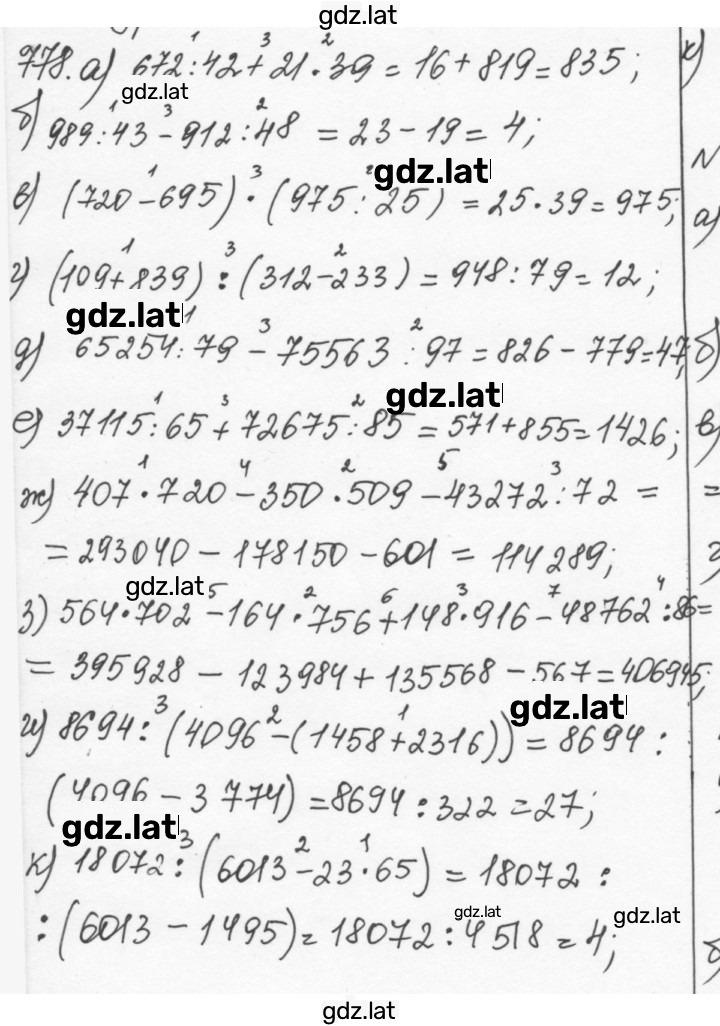 gdz.lat
778. а) 672:42+21·39=16+819=835;
gdz.lat
б) 989:43-912:48=23-19=4;
gdz.lat
в) (720-695)·(975:25)=25·39=975;
г) (109+839):(312-233)=948:79=12;
gdz.lat
д) 65254:79-75563:97=826-779=47;
gdz.lat
е) 37115:65+72675:85=571+855=1426;
ж) 407·720-350·509-43272:72=
=293040-178150-601=114289;
gdz.lat
з) 564·702-164·756+148·916-48762:86=
=395928-123984+135568-567=406945;
gdz.lat
и) 8694:(4096-(1458+2316))=8694:
(4096-3774)=8694:322=27;
gdz.lat
к) 18072:(6013-23·65)=18072:
gdz.lat gdz.lat
:(6013-1495)=18072:4518=4;
gdz.lat